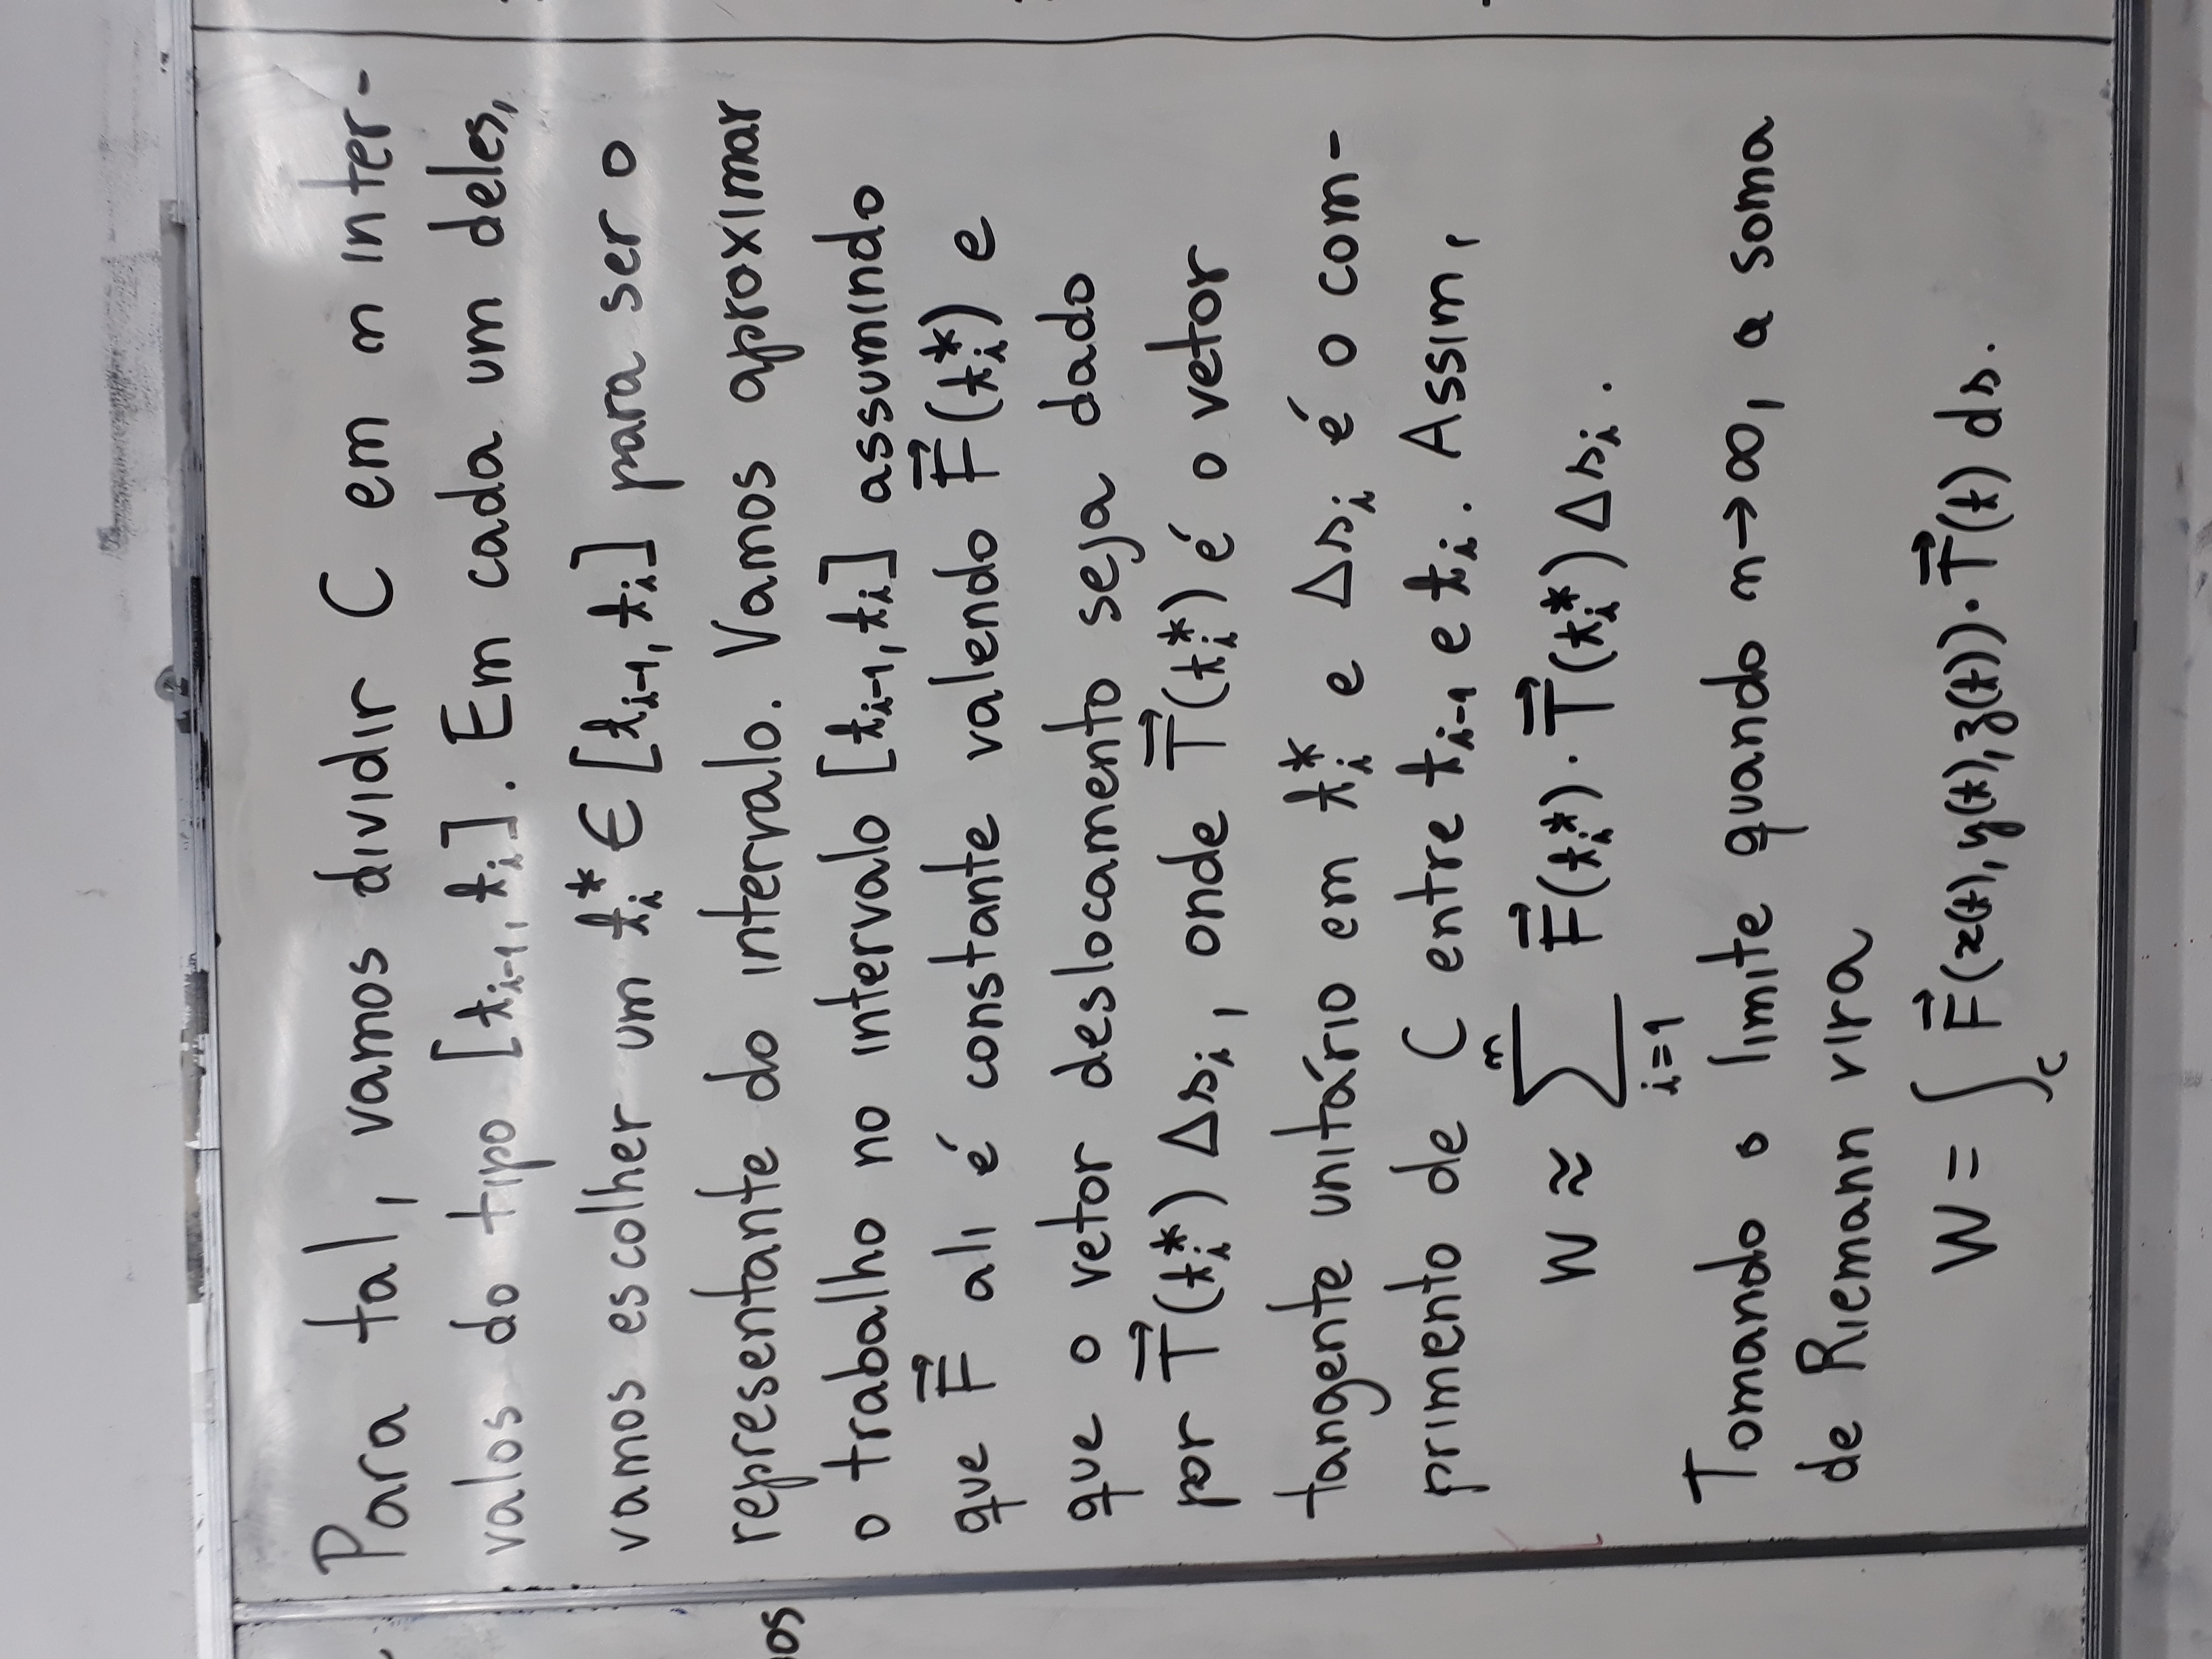 Para tal, vamos dividir C em n inter-
valos do tipo [t_{i-1}, t_i]. Em cada um deles,
vamos escolher um t_i^* ∈ [t_{i-1}, t_i] para ser o
representante do intervalo. Vamos aproximar
o trabalho no intervalo [t_{i-1}, t_i] assumindo
que \vec{F} ali é constante valendo \vec{F}(t_i^*) e
que o vetor deslocamento seja dado
por \vec{T}(t_i^*) Δs_i, onde \vec{T}(t_i^*) é o vetor
tangente unitário em t_i^* e Δs_i é o com-
primento de C entre t_{i-1} e t_i. Assim,
W ≈ \sum_{i=1}^{n} \vec{F}(t_i^*) · \vec{T}(t_i^*) Δs_i.
Tomando o limite quando n→∞, a soma
de Riemann vira
W = \int_C \vec{F}(x(t), y(t), z(t)) · \vec{T}(t) ds.